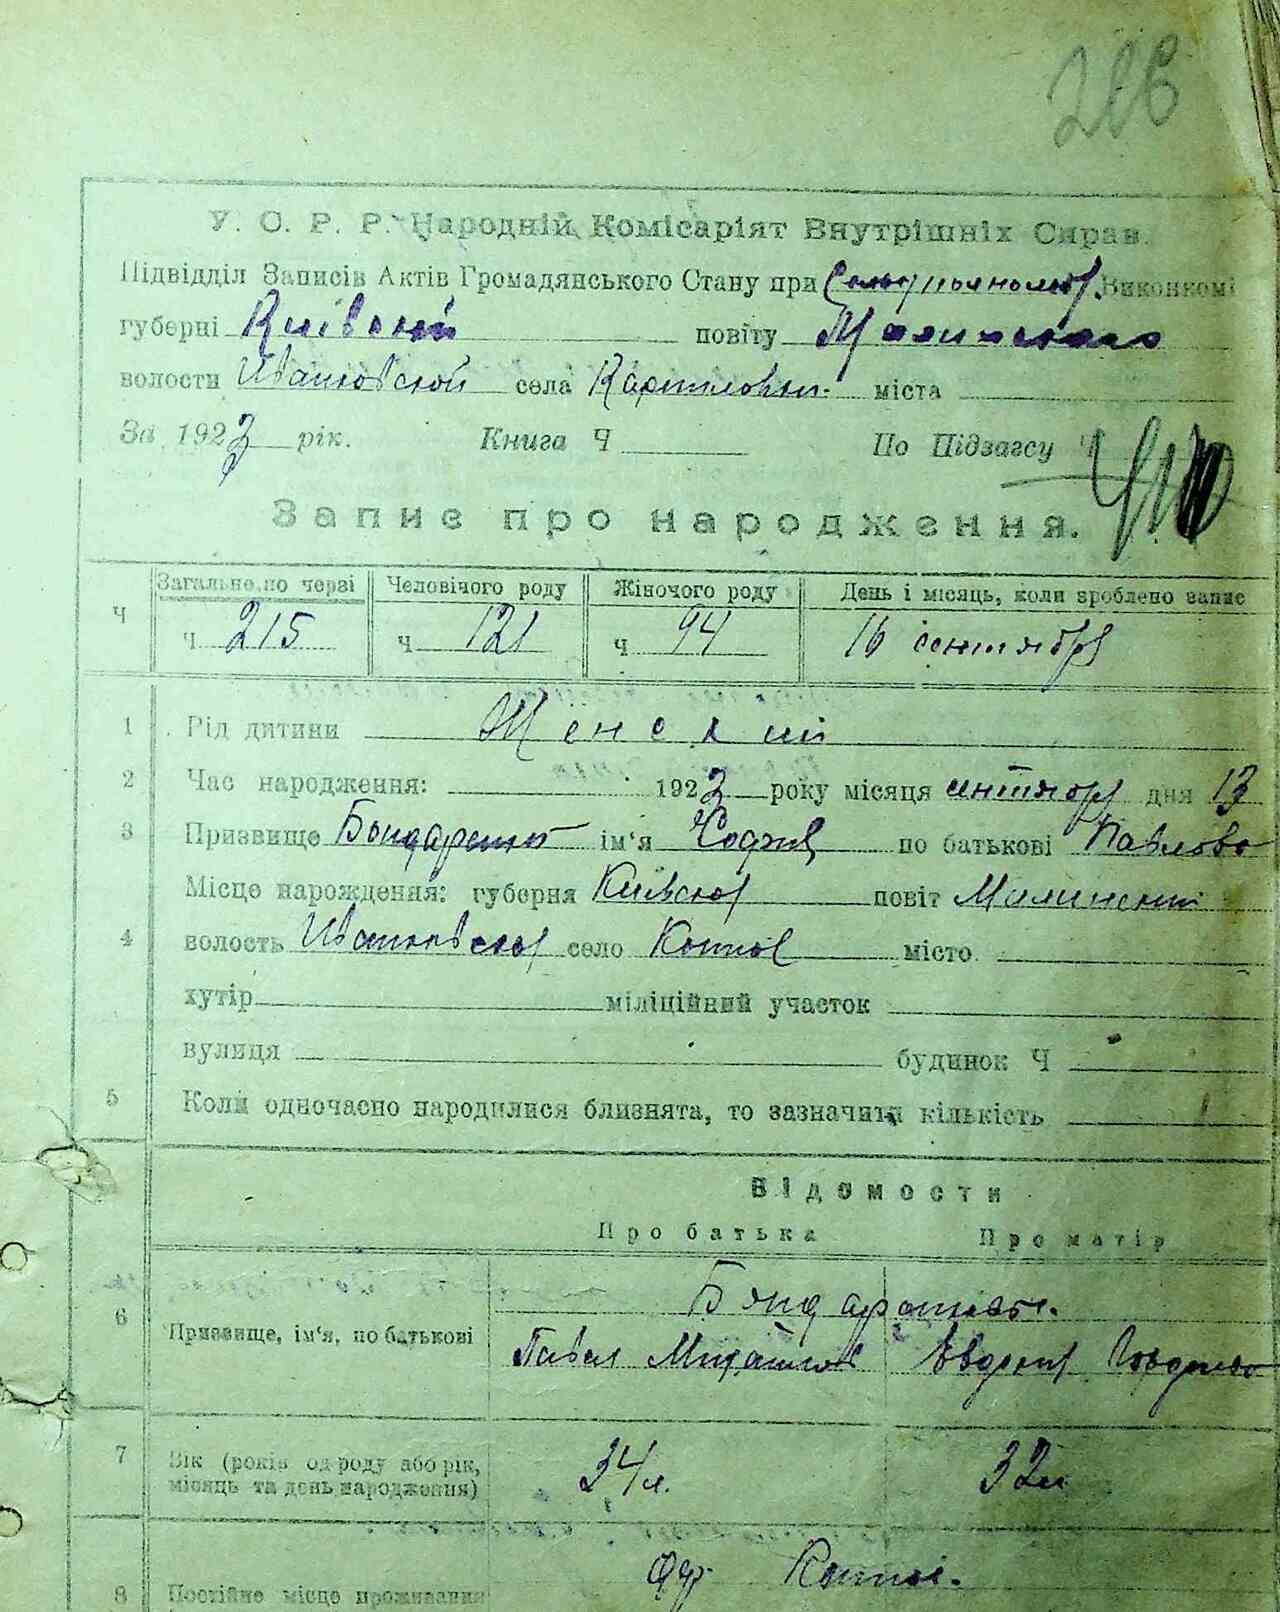 У. С. Р. Р. Народній Комісаріят Внутрішніх Справ.
Підвідділ Записів Актів Громадянського Стану при Виконкомі
губерні Київской повіту Малинского
волости Иванковской села міста
За 1922 рік. Книга Ч По Підзагсу Ч
Запис про народження.
Загальне по черзі Человічого роду Жіночого роду День і місяць, коли зроблено запис
Ч Ч 215 Ч 121 Ч 94 16 сентября
1 Рід дитини Женский
2 Час народження: 1922 року місяця сентября дня 13
3 Призвище Бондаренко ім'я София по батькові Павлова
Місце народження: губерня Киевская повіт Малинский
4 волость Иванковская село місто
хутір міліційний участок
вулиця будинок Ч
5 Коли одночасно народилися близнята, то зазначити кількість
Відомости
Про батька Про матір
Бондаренко.
6 Призвище, ім'я, по батькові Павел Михайлов Евдокия
7 Вік (років од роду або рік, місяць та день народження) 34 л. 32 л.
8 Постійне місце проживання